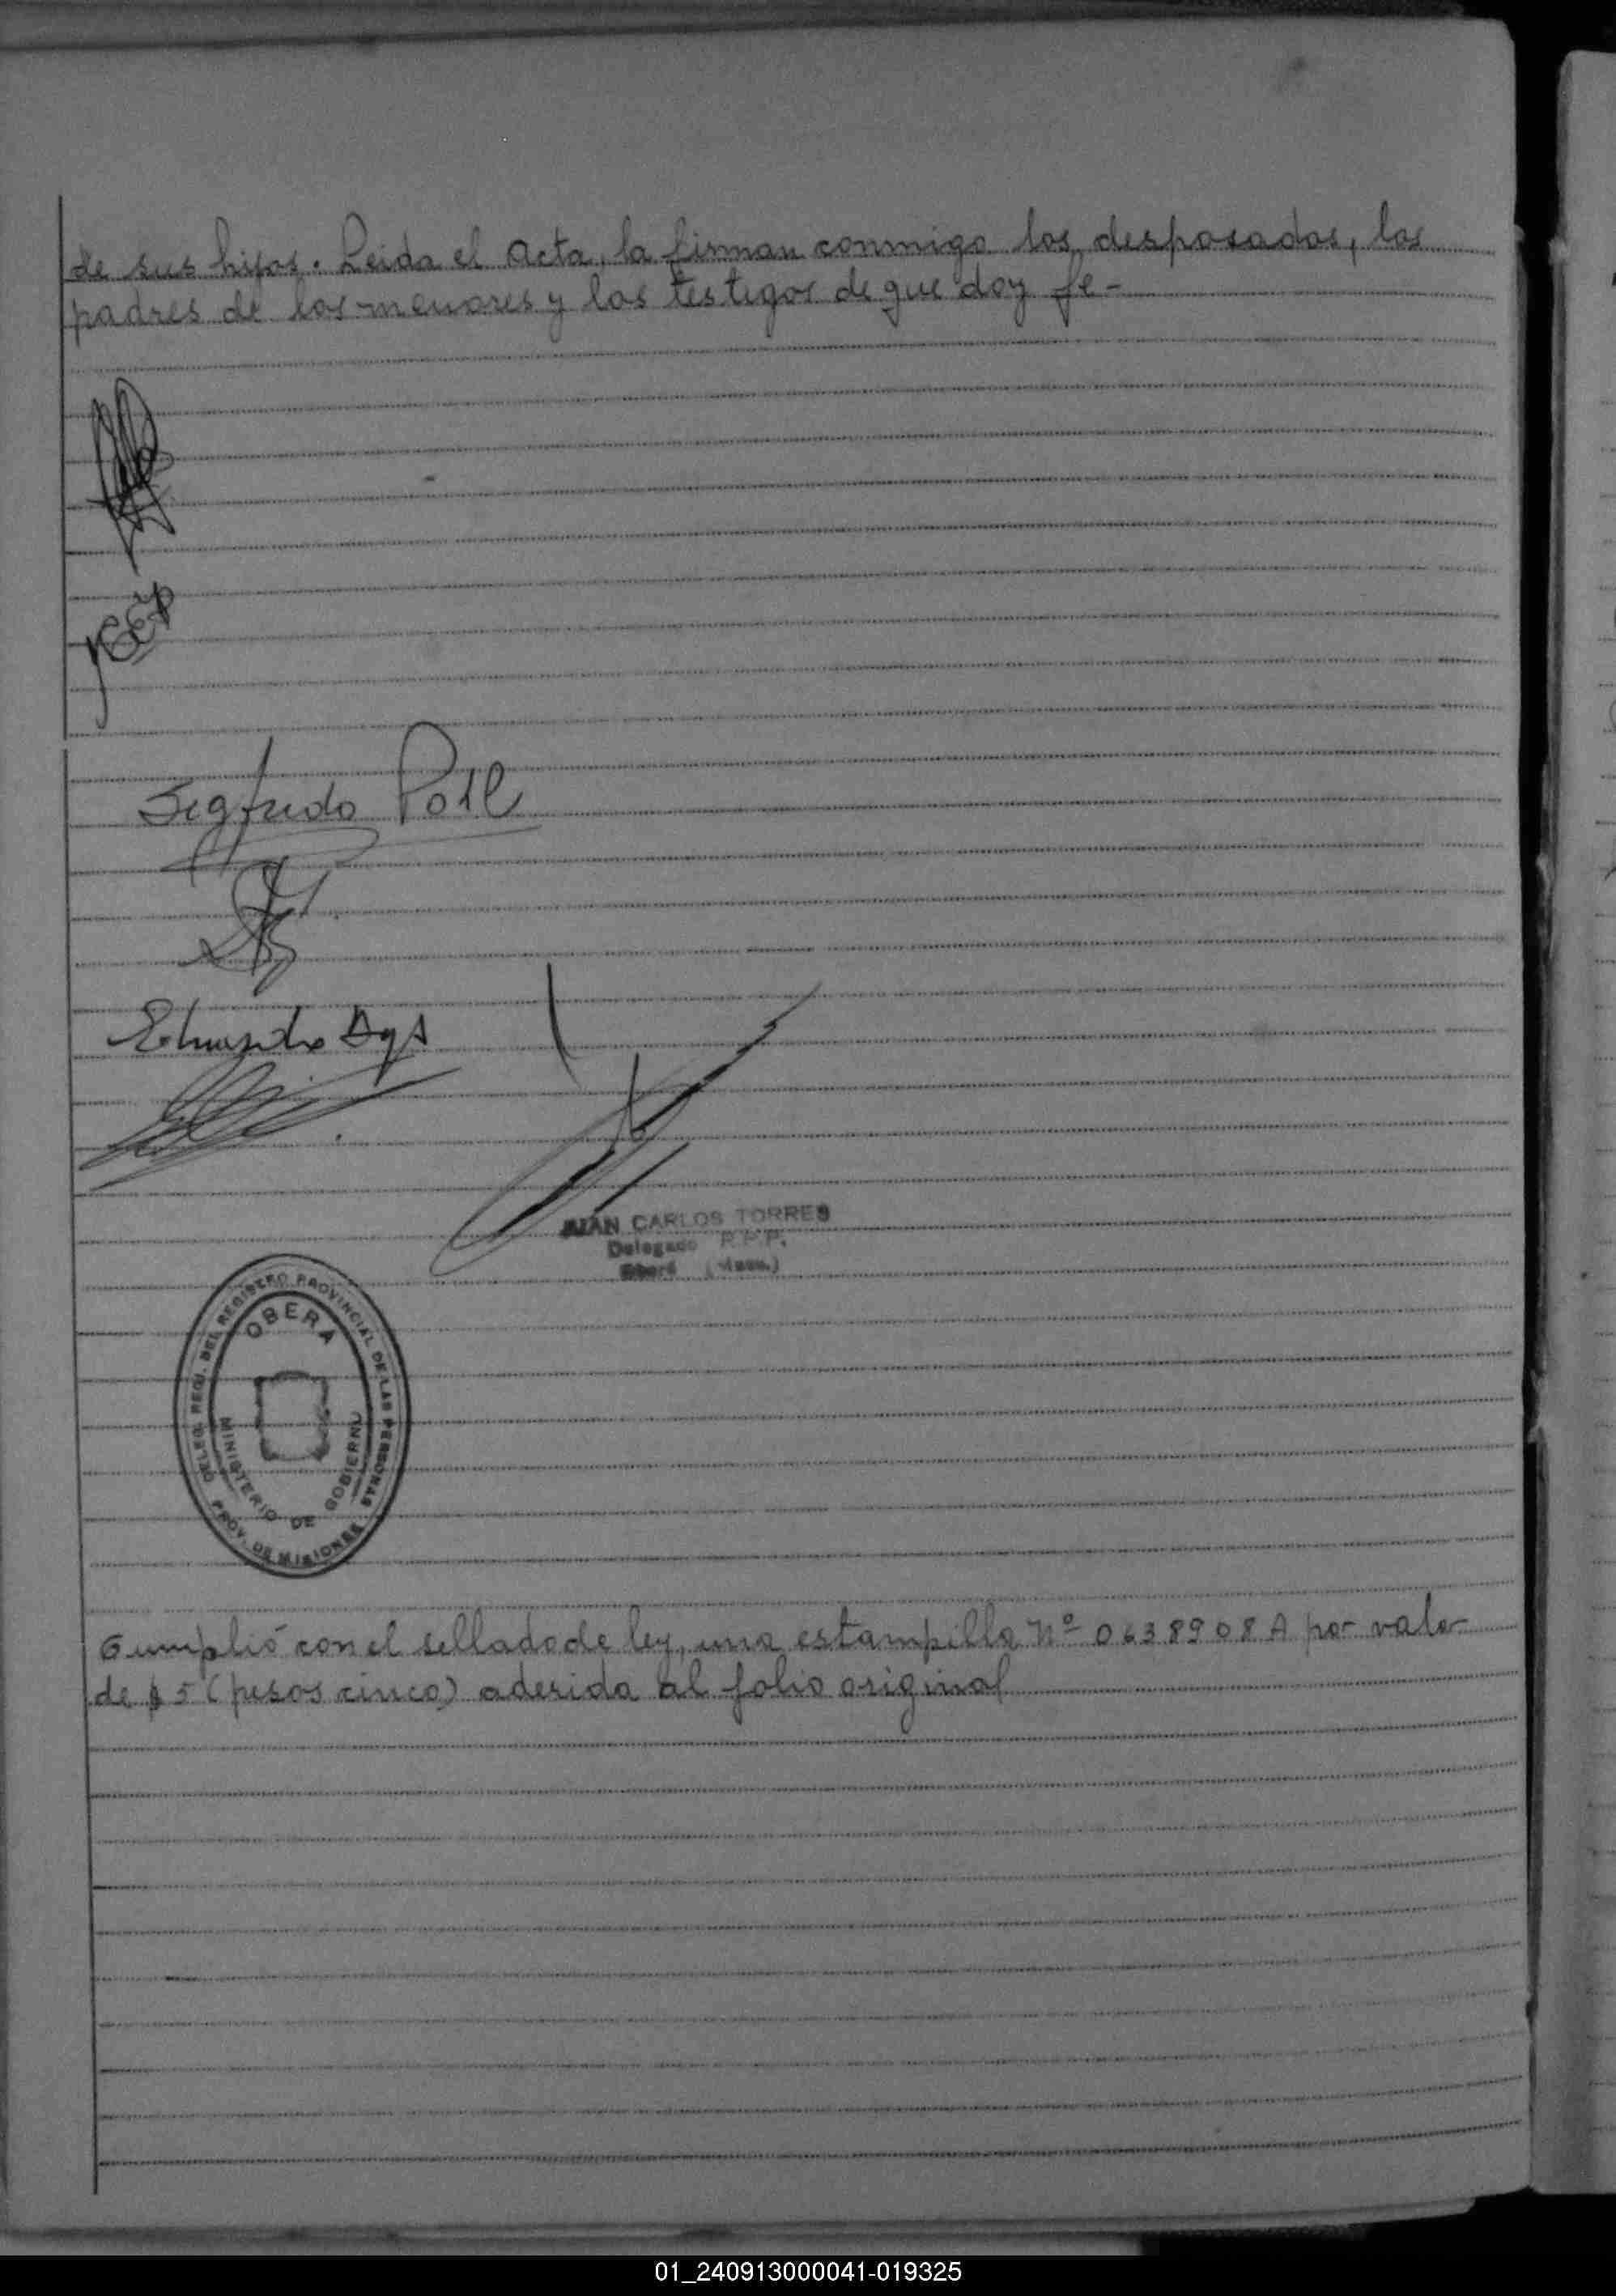 de sus hijos. Leida el acta, la firman conmigo los desposados, los
padres de los menores y los testigos de que doy fe-
Segfredo Poll
Eduardo
JUAN CARLOS TORRES
Delegado R.P.P.
Oberá (Mnes.)
DELEG. REGI. DEL REGISTRO PROVINCIAL DE LAS PERSONAS
OBERA
MINISTERIO DE GOBIERNO
PROV. DE MISIONES
Cumplió con el sellado de ley, una estampilla Nº 0638908A por valor
de $5 (pesos cinco) aderida al folio original
01_240913000041-019325